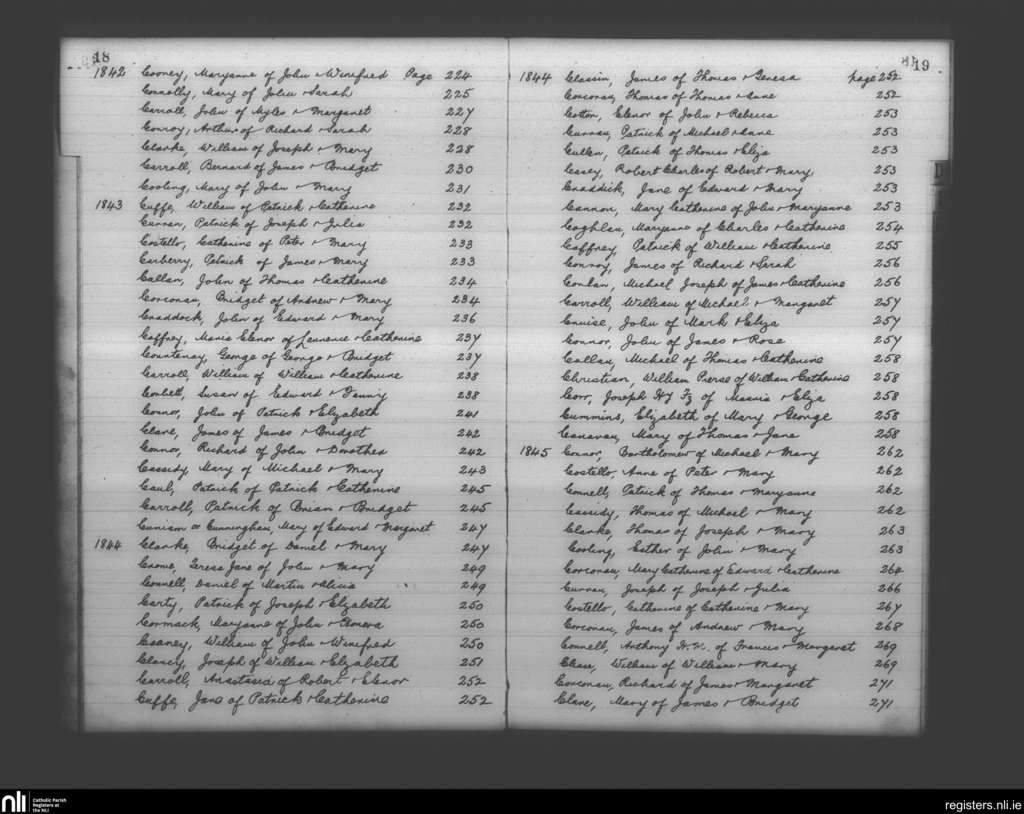 18
1842 Cooney, Maryanne of John & Winefred Page 224
Connolly, Mary of John & Sarah 225
Carroll, John of Myles & Margaret 227
Conroy, Arthur of Richard & Sarah 228
Clarke, William of Joseph & Mary 228
Carroll, Bernard of James & Bridget 230
Cooling, Mary of John & Mary 231
1843 Cuffe, William of Patrick & Catherine 232
Curran, Patrick of Joseph & Julia 232
Costello, Catherine of Peter & Mary 233
Carberry, Patrick of James & Mary 233
Callan, John of Thomas & Catherine 234
Corconan, Bridget of Andrew & Mary 234
Craddock, John of Edward & Mary 236
Caffrey, Maria Elenor of Laurence & Catherine 237
Countenay, George of George & Bridget 237
Carroll, William of William & Catherine 238
Corbett, Susan of Edward & Fanny 238
Connor, John of Patrick & Elizabeth 241
Clare, James of James & Bridget 242
Connor, Richard of John & Dorothea 242
Cassidy Mary of Michael & Mary 243
Caul, Patrick of Patrick & Catherine 245
Carroll, Patrick of Brian & Bridget 245
Cuniam or Cunningham, Mary of Edward & Margaret 247
1844 Clarke, Bridget of Daniel & Mary 247
Crome, Teresa Jane of John & Mary 249
Connell, Daniel of Martin & Alicia 249
Carty, Patrick of Joseph & Elizabeth 250
Cormack, Maryanne of John & Honora 250
Cooney, William of John & Winefred 250
Clancy, Joseph of William & Elizabeth 251
Carroll, Anastasia of Robert & Elenor 252
Cuffe, Jane of Patrick & Catherine 252
19
1844 Classin, James of Thomas & Teresa page 252
Corconan, Thomas of Thomas & Anne 252
Cotton, Elenor of John & Rebecca 253
Curran, Patrick of Michael & Anne 253
Cullen, Patrick of Thomas & Eliza 253
Casey, Robert Charles of Robert & Mary 253
Craddick, Jane of Edward & Mary 253
Cannon, Mary Catherine of John & Maryanne 253
Coghlan, Maryanne of Charles & Catherine 254
Caffrey, Patrick of William & Catherine 255
Conroy, James of Richard & Sarah 256
Conlan, Michael Joseph of James & Catherine 256
Carroll, William of Michael & Margaret 257
Cruise, John of Mark & Eliza 257
Connor, John of James & Rose 257
Callan, Michael of Thomas & Catherine 258
Christian, William Pierse of William & Catherine 258
Corr, Joseph Hy Fz of & Eliza 258
Cummins, Elizabeth of Mary & George 258
Canavan, Mary of Thomas & Jane 258
1845 Connor, Bartholomew of Michael & Mary 262
Costello, Anne of Peter & Mary 262
Connell, Patrick of Thomas & Maryanne 262
Cassidy, Thomas of Michael & Mary 262
Clarke, Thomas of Joseph & Mary 263
Cooling, Esther of John & Mary 263
Corconan, Mary Catherine of Edward & Catherine 264
Curran, Joseph of Joseph & Julia 266
Costello, Catherine of Catherine & Mary 267
Corconan, James of Andrew & Mary 268
Connell, Anthony of Francis & Margaret 269
Chase, William of William & Mary 269
Corconan, Richard of James & Margaret 271
Clare, Mary of James & Bridget 271
nli Catholic Parish
Registers at
the NLI
registers.nli.ie